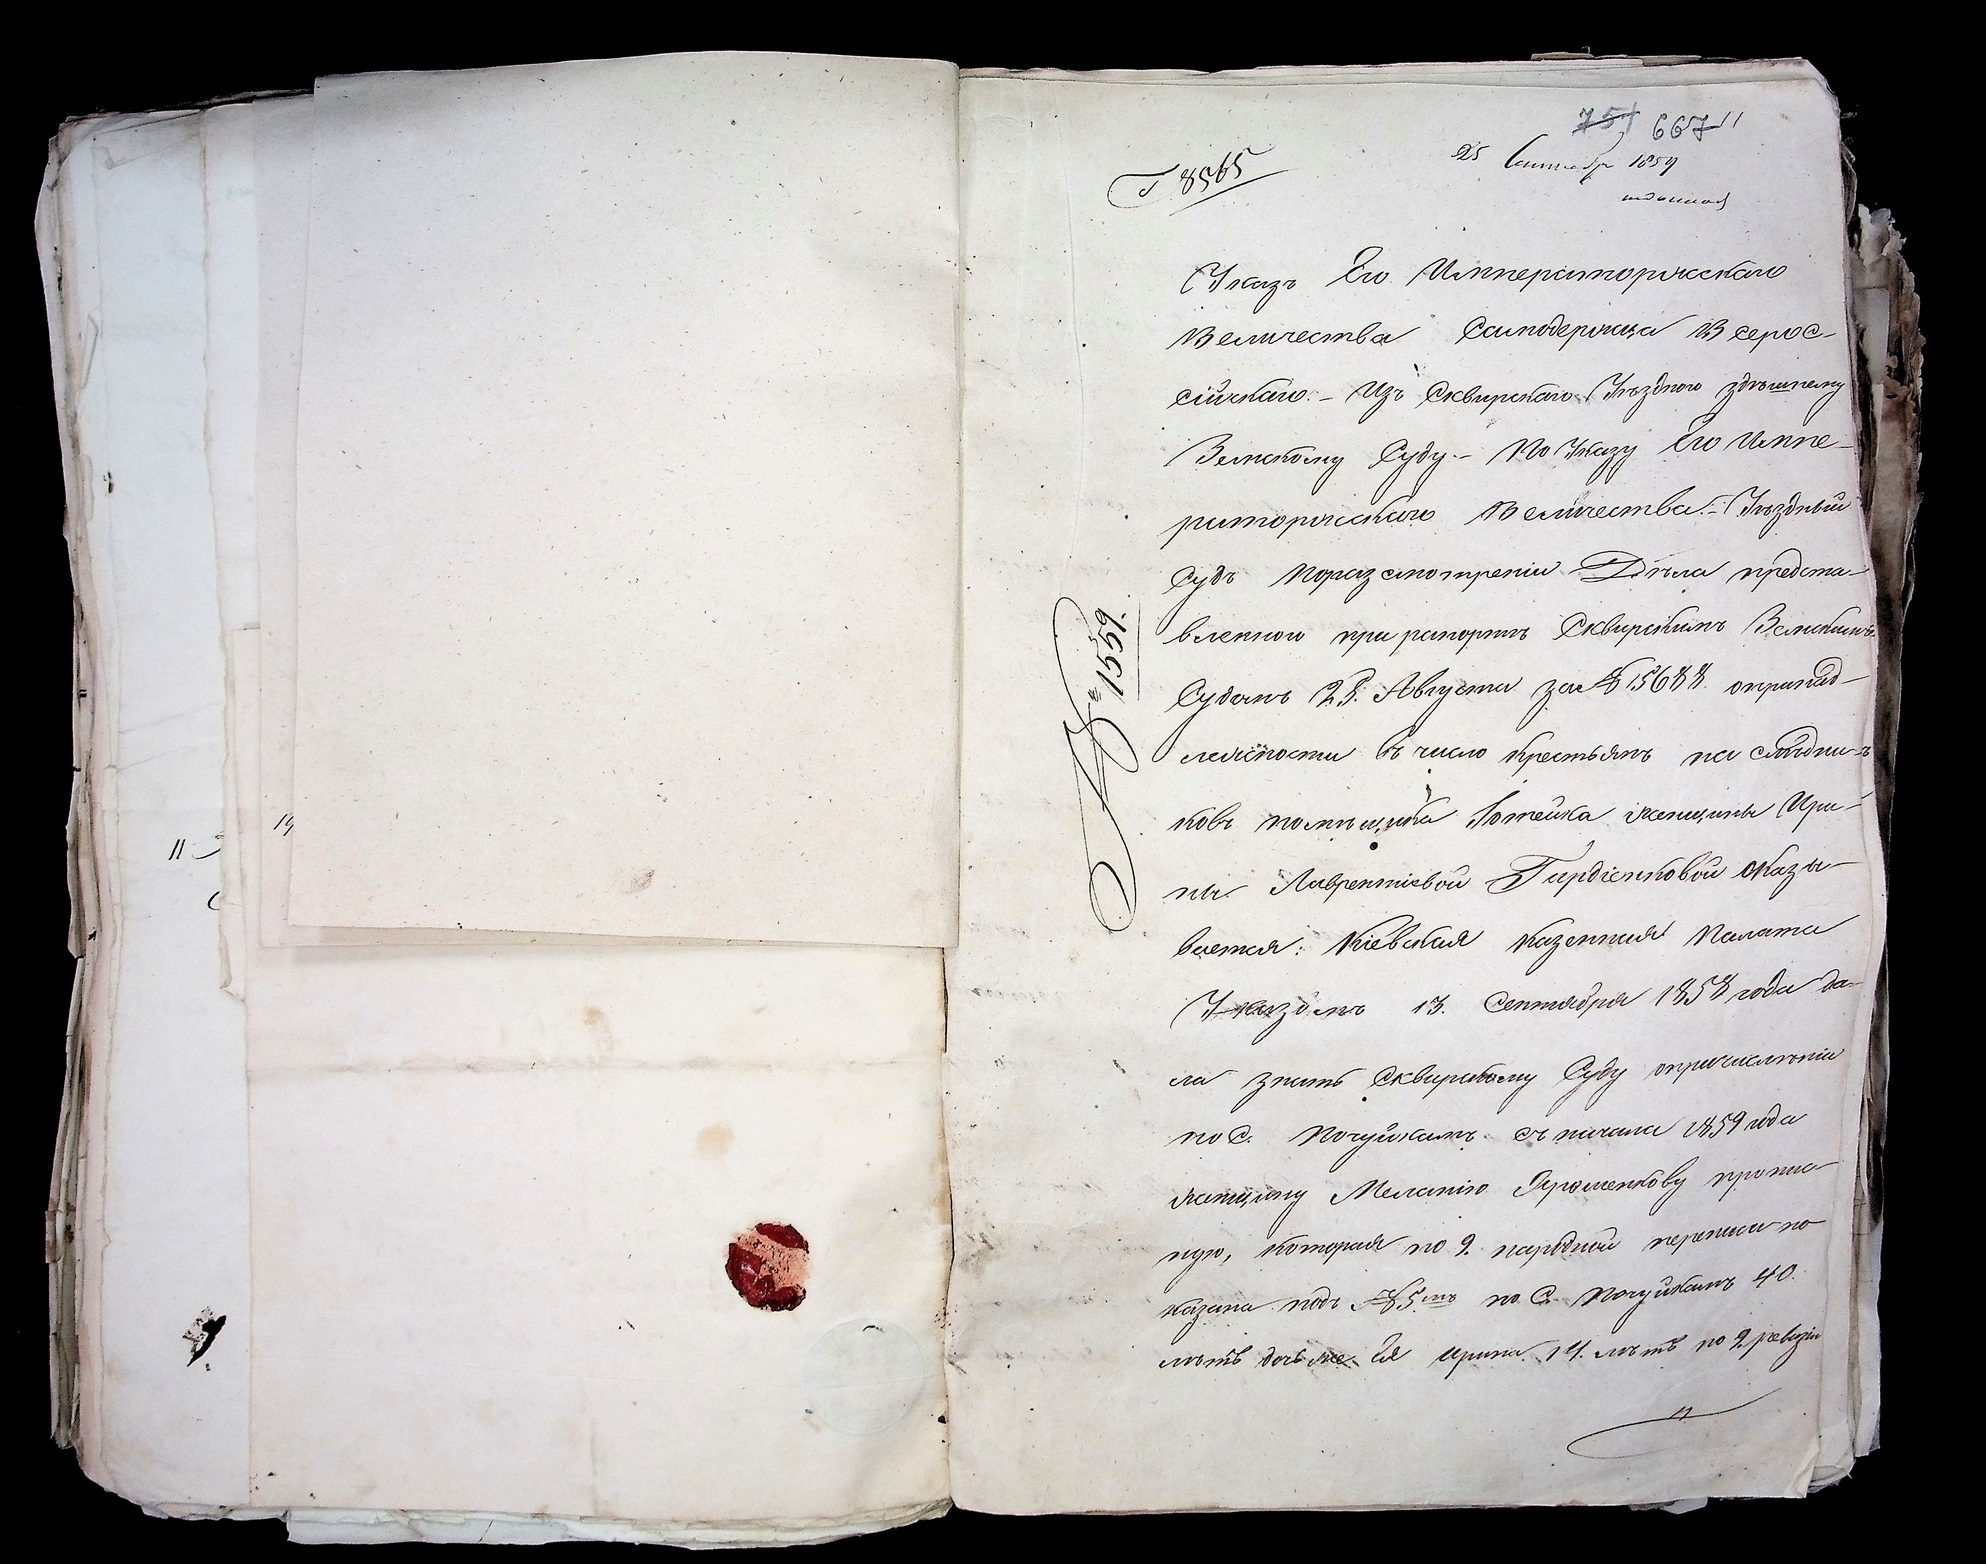 751 667
25 Сентября 1859
8565
Указъ Его Императорскаго
Величества Самодержца Всерос-
сійскаго. - Изъ Сквирскаго Уѣзднаго здѣшнему
Земскому Суду. - По Указу Его Импе-
раторскаго Величества. - Уѣздный
Судъ поразсмотреніи Дѣла предста-
вленного при рапортѣ Сквирскимъ Земскимъ
Судомъ 25. Августа за № 15688 опринад-
лежности въ число крестьянъ наслѣдни-
ковъ помѣщика женщины Ири-
ны Лаврентіевой Гирдіенковой оказы-
вается: Кіевская Казенная Палата
Указомъ 13. Сентября 1858 года да-
ла знать Сквирскому Суду опричисленіи
по С. Почуйкамъ съ начала 1859 года
женщину Меланію Яременкову пропис-
ную, которая по 9. народной переписи по
казана подъ № 5мъ по С. Почуйкамъ 40.
лѣтъ дочь же Ея Ирина 14. лѣтъ по 9 ревізіи
№ 1559.
11
14